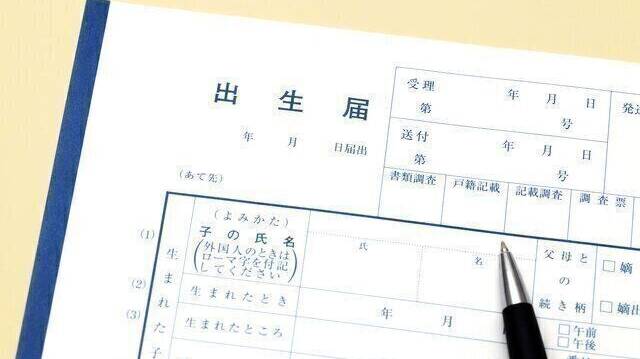 出生届
年 月 日届出
(あて先)
受理 年 月 日
第 号
発送
送付 年 月 日
第 号
書類調査 戸籍記載 記載調査 調査票
(1) 生まれた子
(よみかた)
子の氏名
(外国人のときは
ローマ字を付記
してください)
氏 名
父母と
の
続き柄
□嫡
□嫡出
(2) 生まれたとき 年 月
□午前
□午後
(3) 生まれたところ